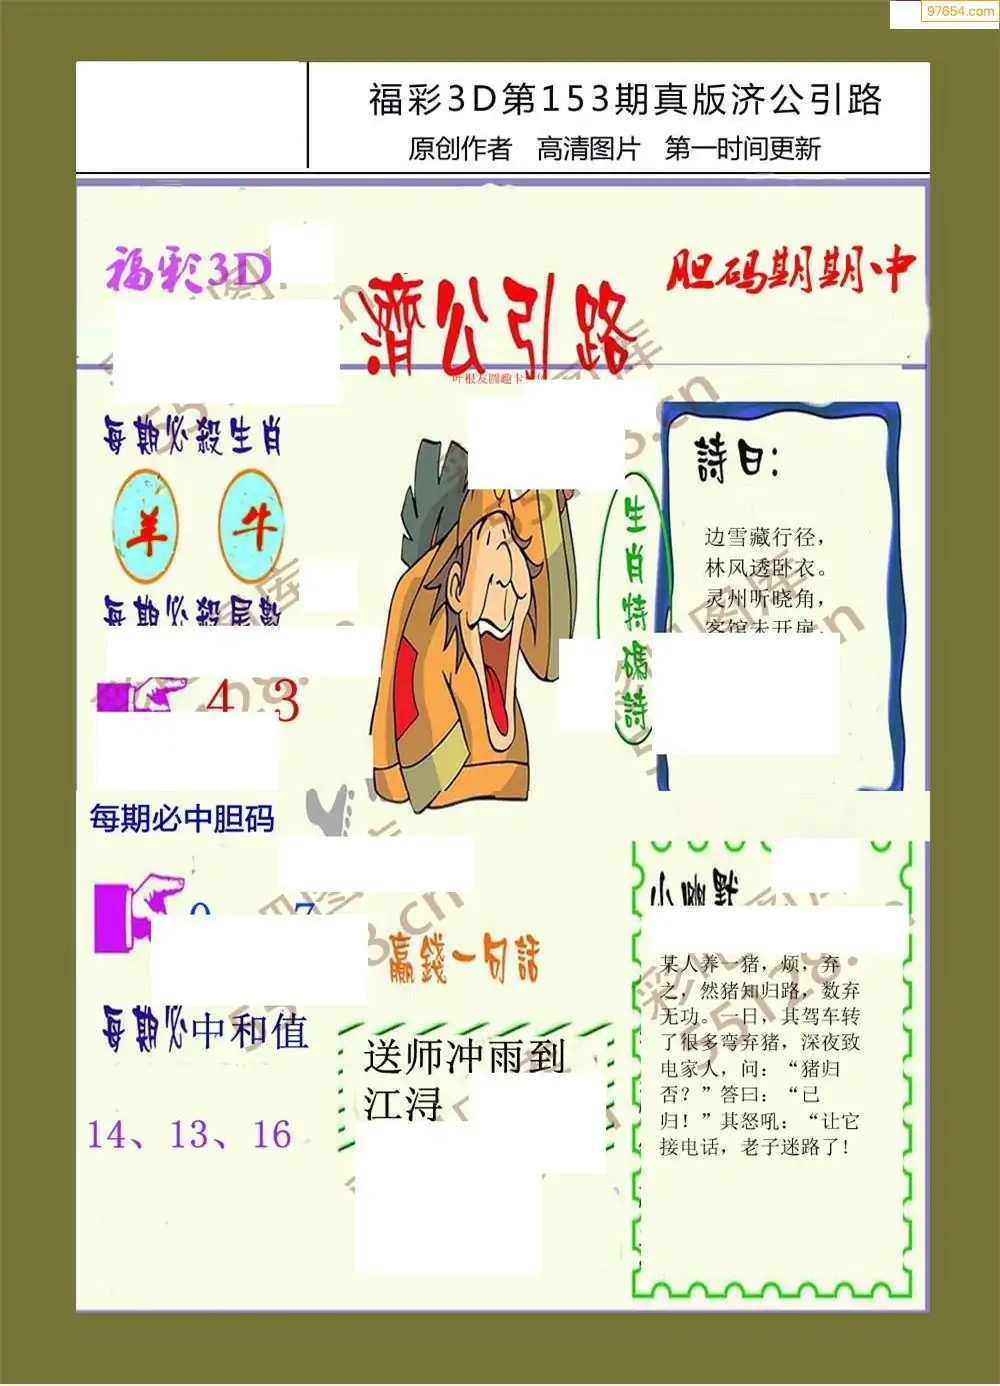 97654.com
福彩3D第153期真版济公引路
原创作者 高清图片 第一时间更新
福彩3D
濟公引路
胆码期期中
每期必殺生肖
羊 牛
每期必殺尾數
4 3
每期必中胆码
每期必中和值
14、13、16
生肖特碼詩
詩曰:
边雪藏行径,
林风透卧衣。
灵州听晓角,
客馆未开扉。
赢錢一句話
送师冲雨到
江浔
小幽默
某人养一猪，烦，弃
之，然猪知归路，数弃
无功。一日，其驾车转
了很多弯弃猪，深夜致
电家人，问：“猪归
否？”答曰：“已
归！”其怒吼：“让它
接电话，老子迷路了!